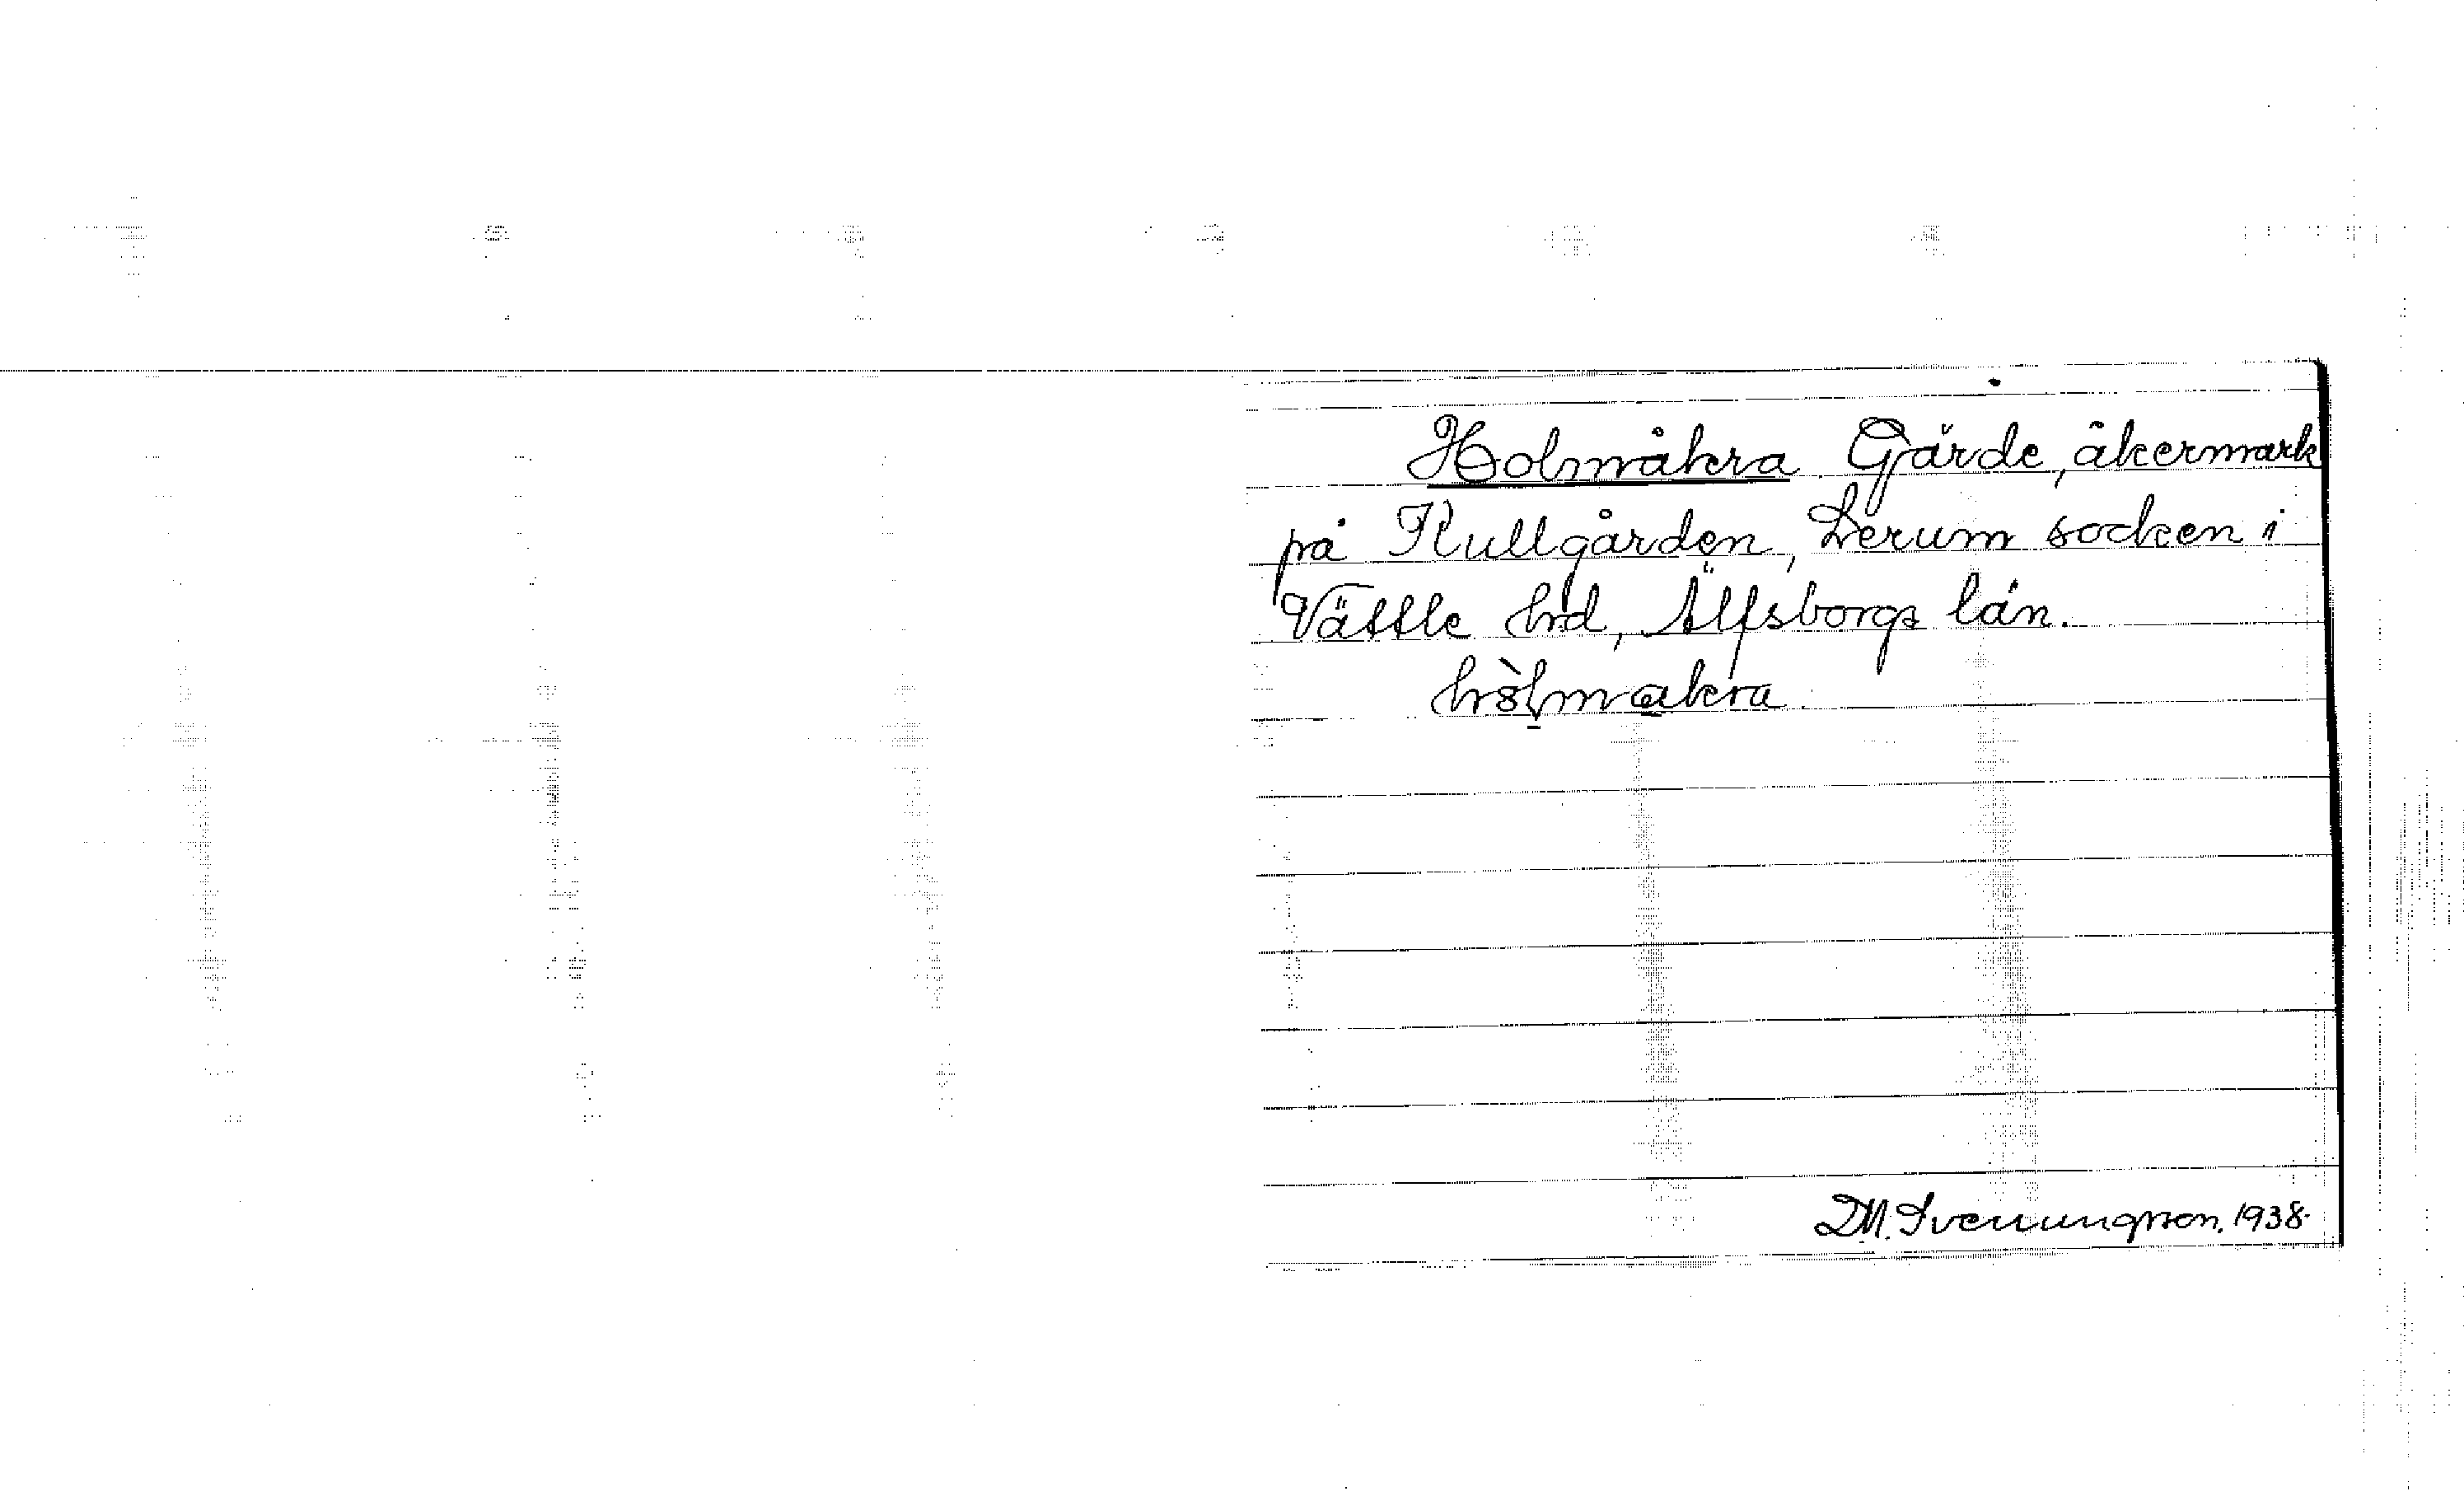 Holmåkra Gärde, åkermark
på Kullgården, Lerum socken i
Vättle hrd, Älfsborgs län.
hòlmakra
D.M. Svenungson. 1938.